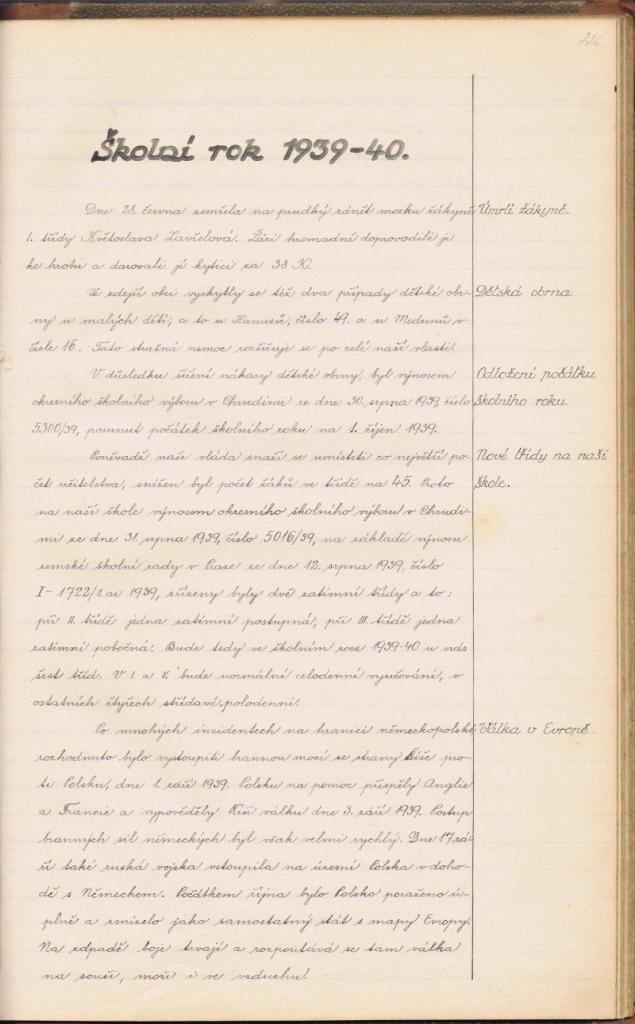 226
Školní rok 1939-40.
Dne 28. června zemřela na prudký zánět mozku žákyně Úmrtí žákyně.
1. třídy Květoslava Zavřelová. Žáci hromadně doprovodili ji
ke hrobu a darovali jí kytici za 38 K.
Ve zdejší obci vyskytly se též dva případy dětské obr- Dětská obrna
ny u malých dětí, a to u Hanusů, číslo 49. a u Medunů v
čísle 16. Tato strašná nemoc rozšiřuje se po celé naší vlasti.
V důsledku šíření nákazy dětské obrny, byl výnosem Odložení počátku
okresního školního výboru v Chrudimi ze dne 30. srpna 1939, číslo školního roku.
5300/39, posunut počátek školního roku na 1. říjen 1939.
Poněvadž naše vláda snaží se umístiti co největší po- Nové třídy na naší
čet učitelstva, snížen byl počet žáků ve třídě na 45. Proto škole.
na naší škole výnosem okresního školního výboru v Chrudi-
mi ze dne 31. srpna 1939, číslo 5016/39, na základě výnosu
zemské školní rady v Praze ze dne 12. srpna 1939, číslo
I-1722/1 ai 1939, zřízeny byly dvě zatímní třídy a to:
při II. třídě jedna zatímní postupná, při III. třídě jedna
zatímní pobočná. Bude tedy ve školním roce 1939-40 u nás
šest tříd. V I. a V. bude normální celodenní vyučování, v
ostatních čtyřech střídavé, polodenní.
Po mnohých incidentech na hranici německopolské Válka v Evropě.
rozhodnuto bylo vystoupiti brannou mocí se strany Říše pro-
ti Polsku, dne 1. září 1939. Polsku na pomoc přispěly Anglie
a Francie a vypověděly Říši válku dne 3. září 1939. Postup
branných sil německých byl však velmi rychlý. Dne 17. zá-
ří také ruská vojska vstoupila na území Polska v doho-
dě s Německem. Počátkem října bylo Polsko poraženo ú-
plně a zmizelo jako samostatný stát s mapy Evropy.
Na západě boje trvají a rozpoutává se tam válka
na souši, moři i ve vzduchu!